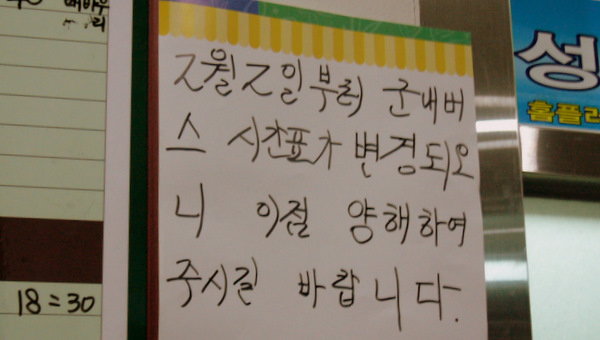 배바우
리
2월 2일 부터 군내버
스 시간표가 변경되오
니 이점 양해하여
주시길 바랍니다.
18=30
성
홈플러